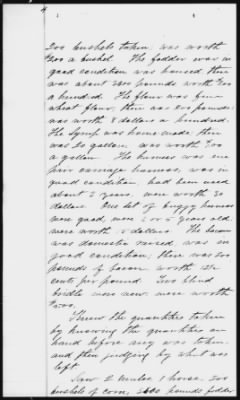 4
200 bushels taken, was worth
$1.00 a bushel. The fodder was in
good condition was housed there
was about 2600 pounds worth $1.00
a hundred. The flour was fine
wheat flour, there was 200 pounds;
was worth 8 dollars a hundred.
The syrup was home made there
was 20 gallons, was worth $1.00
a gallon. The harness was one
pair carriage harness, was in
good condition, had been used
about 2 years, were worth 30
dollars. One set of buggy harness
were good, were 2 or 3 years old
were worth 15 dollars. The bacon
was domestic cured, was in
good condition; there was 200
pounds of bacon worth 12½
cents per pound. Two blind
bridles were new, were worth
$5.00.
I knew the quantities taken
by knowing the quantities on
hand before any was taken,
and then judging by what was
left
Saw 2 mules 1 horse, 200
bushels of corn, 2600 pounds fodder